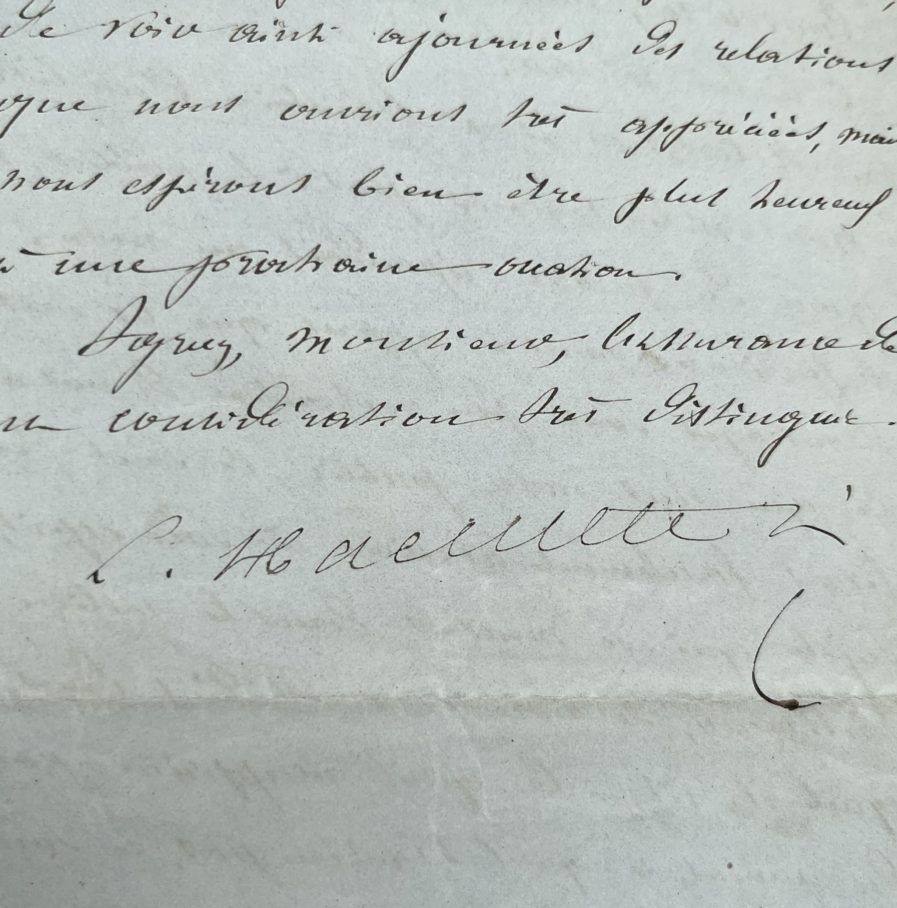 de voir ainsi ajournées des relations
que nous aurions très appréciées, mais
nous espérons bien être plus heureux
à une prochaine occasion.
Agréez, monsieur, l'assurance de
ma considération très distinguée.
L. Hachette